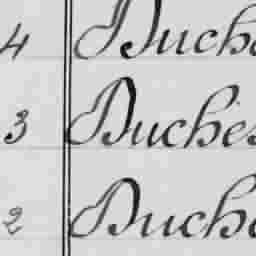 4 Duche
3 Duches
2 Duche